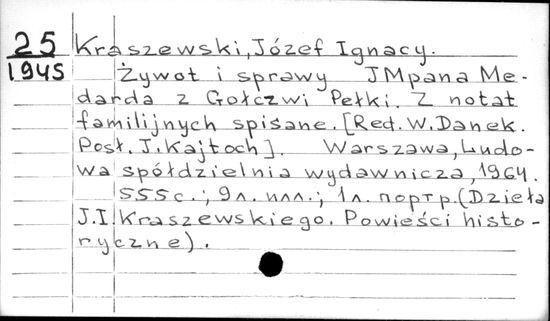 25
1945
Kraszewski, Józef Ignacy.
Żywot i sprawy JMpana Me-
darda z Gołczwi Pełki. Z notat
familijnych spisane. [Red. W. Danek.
Posł. J. Kajtoch]. Warszawa, Ludo-
wa spółdzielnia wydawnicza, 1964.
555 c.; 9 л. илл.; 1 л. портр. (Dzieła
J.I. Kraszewskiego. Powieści histo-
ryczne).